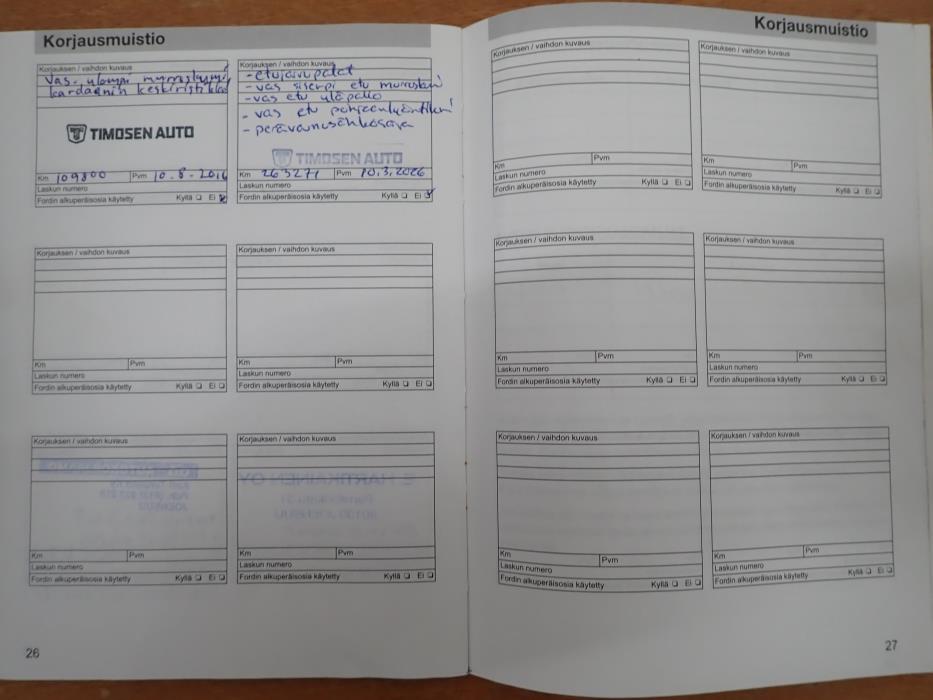 Korjausmuistio
Korjauksen / vaihdon kuvaus
Vas. ulompi
kardaanin keskiristikko
TIMOSEN AUTO
Km 109800 Pvm 10.8-2016
Laskun numero
Fordin alkuperäisosia käytetty Kyllä ❏ Ei ❏
Korjauksen / vaihdon kuvaus
- etujarrupalat
- vas sisempi etu
- vas etu ulopallo
- vas etu
- perävaunusähkösarja
TIMOSEN AUTO
Km 263271 Pvm 10.3.2026
Laskun numero
Fordin alkuperäisosia käytetty Kyllä ❏ Ei ❏
Korjauksen / vaihdon kuvaus
Km Pvm
Laskun numero
Fordin alkuperäisosia käytetty Kyllä ❏ Ei ❏
Korjauksen / vaihdon kuvaus
Km Pvm
Laskun numero
Fordin alkuperäisosia käytetty Kyllä ❏ Ei ❏
Korjauksen / vaihdon kuvaus
Km Pvm
Laskun numero
Fordin alkuperäisosia käytetty Kyllä ❏ Ei ❏
Korjauksen / vaihdon kuvaus
Km Pvm
Laskun numero
Fordin alkuperäisosia käytetty Kyllä ❏ Ei ❏
26
Korjausmuistio
Korjauksen / vaihdon kuvaus
Km Pvm
Laskun numero
Fordin alkuperäisosia käytetty Kyllä ❏ Ei ❏
Korjauksen / vaihdon kuvaus
Km Pvm
Laskun numero
Fordin alkuperäisosia käytetty Kyllä ❏ Ei ❏
Korjauksen / vaihdon kuvaus
Km Pvm
Laskun numero
Fordin alkuperäisosia käytetty Kyllä ❏ Ei ❏
Korjauksen / vaihdon kuvaus
Km Pvm
Laskun numero
Fordin alkuperäisosia käytetty Kyllä ❏ Ei ❏
Korjauksen / vaihdon kuvaus
Km Pvm
Laskun numero
Fordin alkuperäisosia käytetty Kyllä ❏ Ei ❏
Korjauksen / vaihdon kuvaus
Km Pvm
Laskun numero
Fordin alkuperäisosia käytetty Kyllä ❏ Ei ❏
27